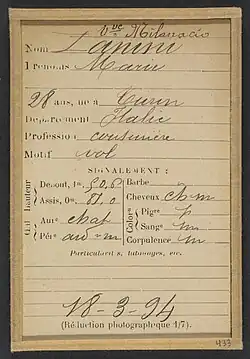 Vve Milanaccio
Nom Zanini
Prénoms Marie
28 ans, né à Turin
Département Italie
Profession couturière
Motif vol
SIGNALEMENT :
Debout, 1m 50,6 Barbe
Assis, 0m Cheveux ch m
Aure chat Pigre
Pére Sange m
Corpulence m
Particularités, tatouages, etc.
18-3-94
(Réduction photographique 1/7).
433